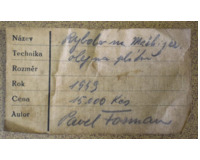 Název Rybolov na
Technika olej na plátně
Rozměr
Rok 1943
Cena 15.000 Kčs
Autor Pavel Forman